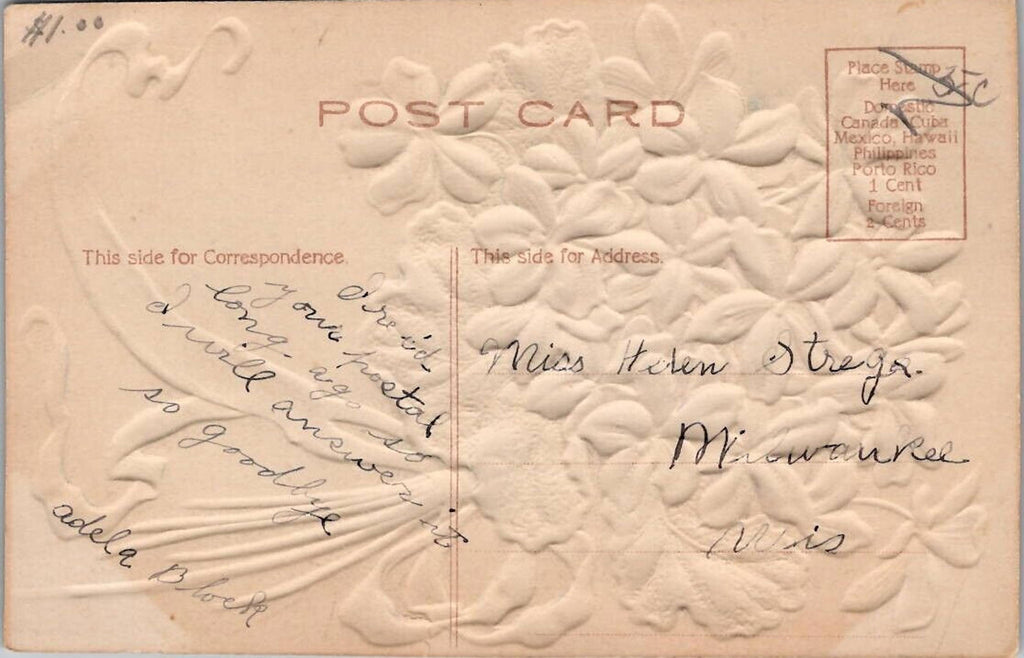 $1.00
POST CARD
Place Stamp
Here
Domestic
Canada, Cuba
Mexico, Hawaii
Philippines
Porto Rico
1 Cent
Foreign
2 Cents
This side for Correspondence.
This side for Address.
I re'id
your postal
long ago so
I will answer it
so goodbye
adela Block
Miss Helen Strega.
Milwaukee
Wis